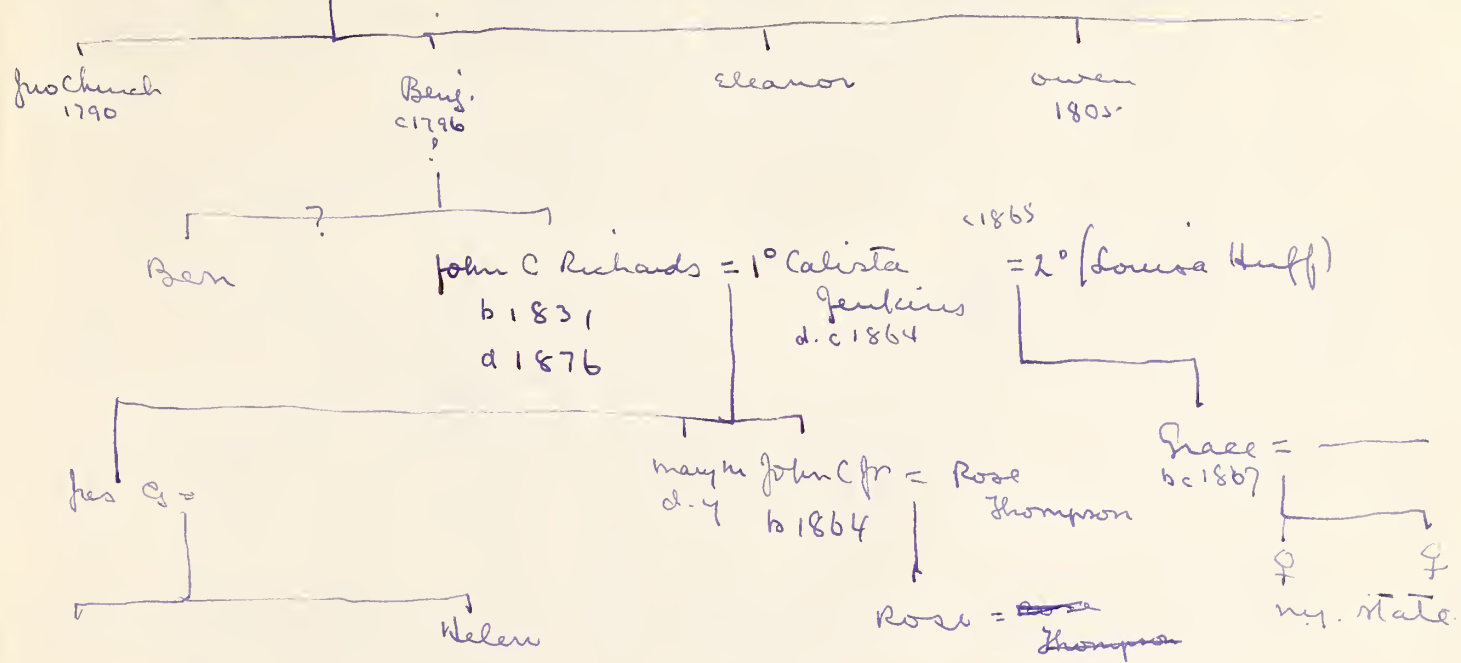 Jno Church
1790
Benj.
c1796
?
Eleanor
Owen
1805
?
Ben
John C Richards = 1° Calista
Jenkins
b 1831
d 1876
d. c 1864
c1865
= 2° (Louisa Huff)
Jas G =
Mary M
d.y
John C Jr = Rose
Thompson
b 1864
Grace =
b c 1867
Helen
Rose = Rose
Thompson
♀ ♀
ny. state.